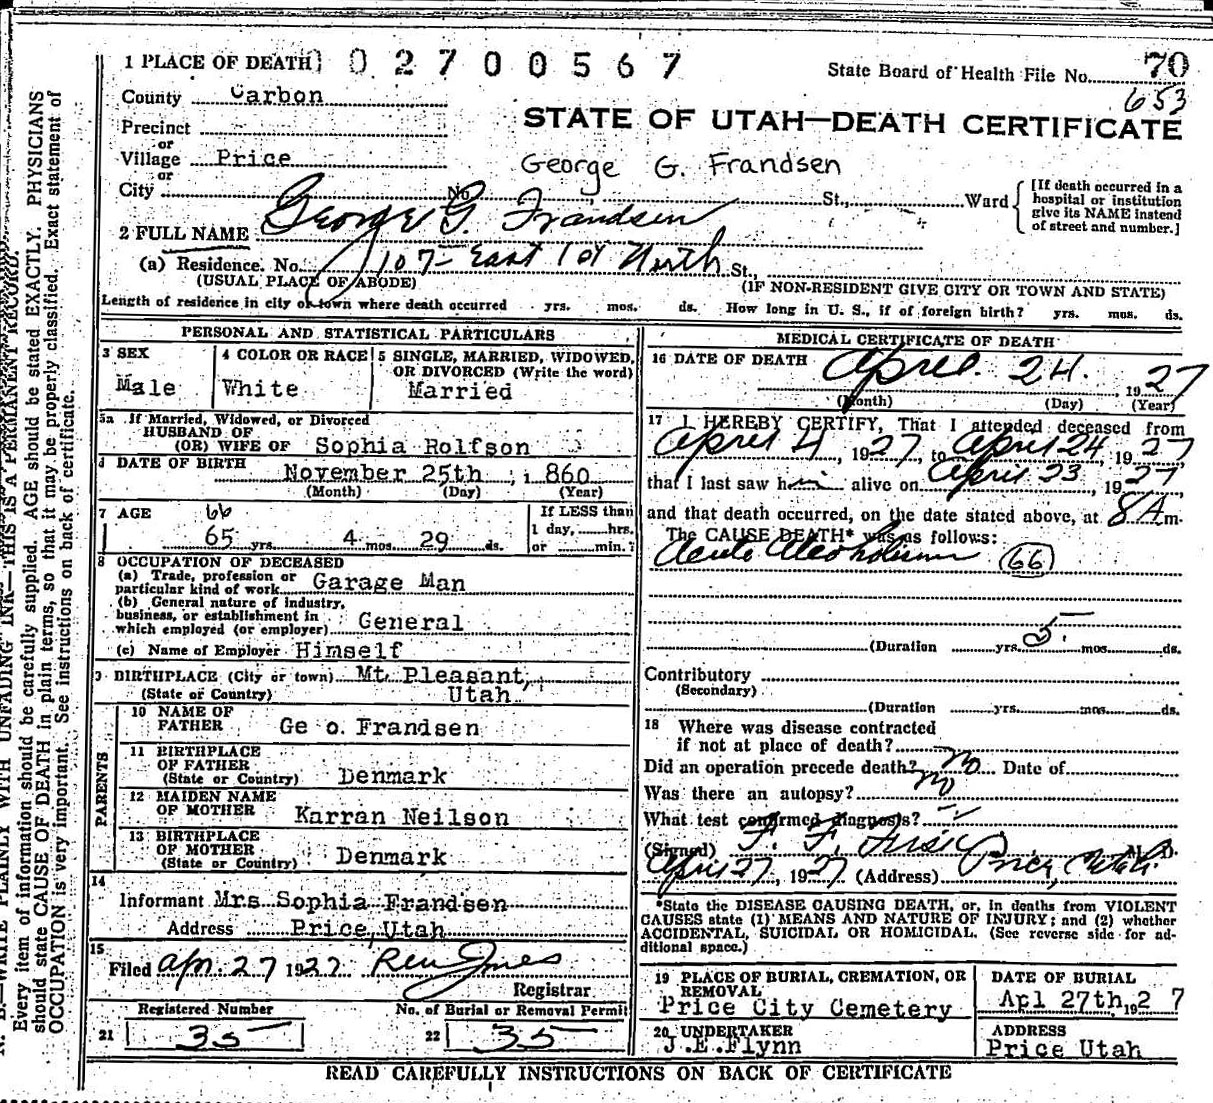 1 PLACE OF DEATH 0 0 2 7 0 0 5 6 7
State Board of Health File No. 70
653
County Carbon
STATE OF UTAH—DEATH CERTIFICATE
Precinct
or
Village Price
George G. Frandsen
or
City No. St., Ward
[If death occurred in a
hospital or institution
give its NAME instend
of street and number.]
2 FULL NAME George G. Frandsen
(a) Residence. No. 107 East 1st North St.,
(USUAL PLACE OF ABODE) (IF NON-RESIDENT GIVE CITY OR TOWN AND STATE)
Length of residence in city or town where death occurred yrs. mos. ds. How long in U. S., if of foreign birth? yrs. mos. ds.
PERSONAL AND STATISTICAL PARTICULARS
3 SEX
Male
4 COLOR OR RACE
White
5 SINGLE, MARRIED, WIDOWED,
OR DIVORCED (Write the word)
Married
5a If Married, Widowed, or Divorced
HUSBAND OF
(OR) WIFE OF Sophia Rolfson
6 DATE OF BIRTH
November 25th ; 1 860
(Month) (Day) (Year)
7 AGE 66
65 yrs. 4 mos. 29 ds.
If LESS than
1 day, hrs.
or min.?
8 OCCUPATION OF DECEASED
(a) Trade, profession or
particular kind of work Garage Man
(b) General nature of industry,
business, or establishment in
which employed (or employer) General
(c) Name of Employer Himself
9 BIRTHPLACE (City or town) Mt. Pleasant,
(State or Country) Utah
PARENTS
10 NAME OF
FATHER Ge o. Frandsen
11 BIRTHPLACE
OF FATHER
(State or Country) Denmark
12 MAIDEN NAME
OF MOTHER Karran Neilson
13 BIRTHPLACE
OF MOTHER
(State or Country) Denmark
14
Informant Mrs Sophia Frandsen
Address Price, Utah
15
Filed Apr. 27 1927
Registrar
Registered Number
21 35
No. of Burial or Removal Permit
22 35
MEDICAL CERTIFICATE OF DEATH
16 DATE OF DEATH April 24. 1927
(Month) (Day) (Year)
17 I HEREBY CERTIFY, That I attended deceased from
April 4, 1927, to April 24, 1927
that I last saw him alive on April 23, 1927
and that death occurred, on the date stated above, at 8 A m.
The CAUSE DEATH* was as follows:
Acute Alcoholism (66)
(Duration yrs. 5 mos. ds.
Contributory
(Secondary)
(Duration yrs. mos. ds.
18 Where was disease contracted
if not at place of death?
Did an operation precede death? no Date of
Was there an autopsy? no
What test confirmed diagnosis?
(Signed) F. F. Fisk M. D.
April 27, 1927 (Address) Price, Utah.
*State the DISEASE CAUSING DEATH, or, in deaths from VIOLENT
CAUSES state (1) MEANS AND NATURE OF INJURY; and (2) whether
ACCIDENTAL, SUICIDAL OR HOMICIDAL. (See reverse side for ad-
ditional space.)
19 PLACE OF BURIAL, CREMATION, OR
REMOVAL
Price City Cemetery
DATE OF BURIAL
Apl 27th, 192 7
20 UNDERTAKER
J.E.Flynn
ADDRESS
Price Utah
READ CAREFULLY INSTRUCTIONS ON BACK OF CERTIFICATE
N. B.—WRITE PLAINLY WITH UNFADING INK—THIS IS A PERMANENT RECORD.
Every item of information should be carefully supplied. AGE should be stated EXACTLY. PHYSICIANS
should state CAUSE OF DEATH in plain terms, so that it may be properly classified. Exact statement of
OCCUPATION is very important. See instructions on back of certificate.